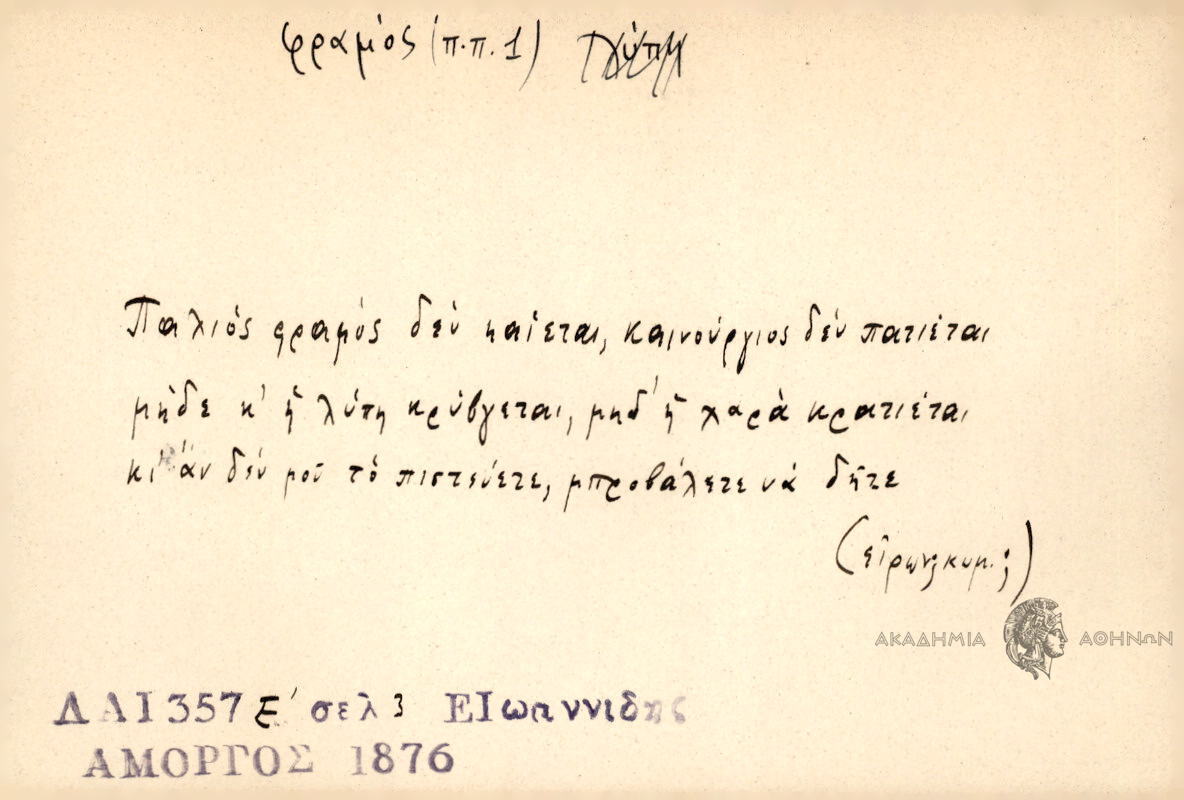 φραμός (π.π. 1)
Παλιός φραμός δέν καίεται, καινούργιος δέν πατιέται
μήδε κ' ἡ λύπη κρύβγεται, μηδ' ἡ χαρὰ κρατιέται
κι' ἄν δέν μοῦ τό πιστεύετε, μπροβάλετε νά δῆτε
ΑΚΑΔΗΜΙΑ ΑΘΗΝΩΝ
ΔΑΙ357 Ε' σελ 3 ΕΙωαννιδης
ΑΜΟΡΓΟΣ 1876